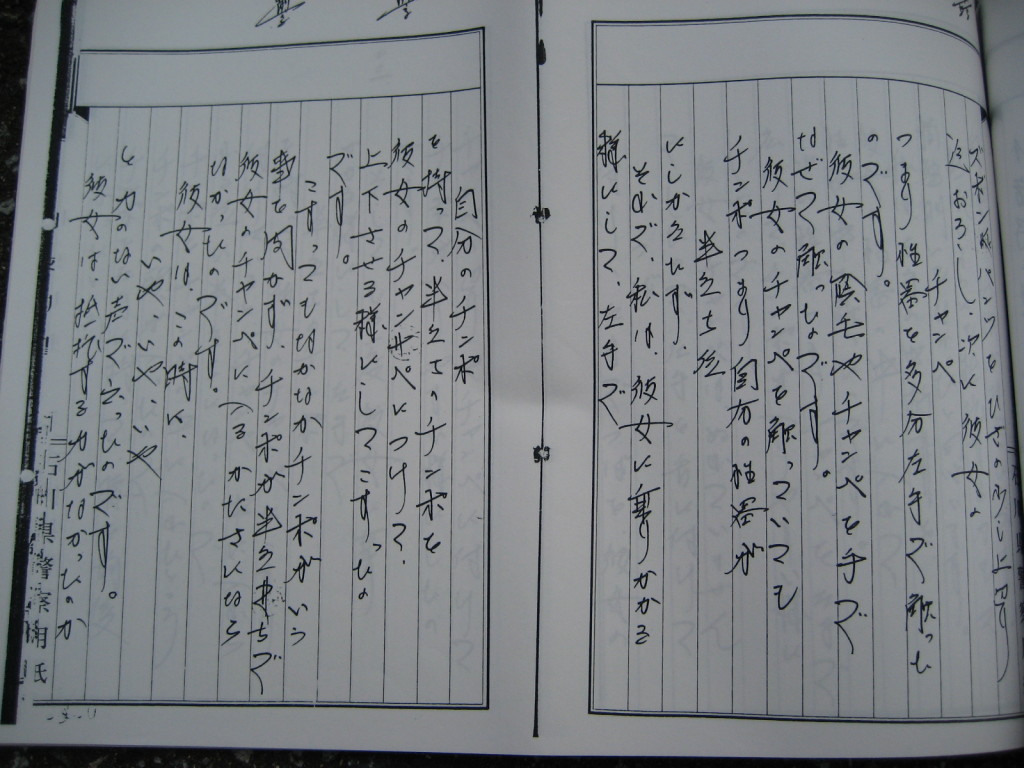 ズボンやパンツをひざの少し上辺り
迄おろし、次に彼女の
チャンペ
つまり性器を多分左手で触った
のです。
彼女の陰毛やチャンペを手で
なぜて触ったのです。
彼女のチャンペを触っていても
チンポつまり自分の性器が
半立ち位
にしかならず
それで、私は、彼女に乗りかかる
様にして、左手で
自分のチンポ
を持って、半立ちのチンポを
彼女のチャンペにつけて、
上下させる様にしてこすったの
です。
こすってもなかなかチンポがいう
事を聞かず、チンポが半立ちで
彼女のチャンペに入るかたさになら
なかったのです。
彼女は、この時に、
いや、いや、いや
と力のない声で言ったのです。
彼女は、抵抗する力がなかったのか
石川県警察用紙